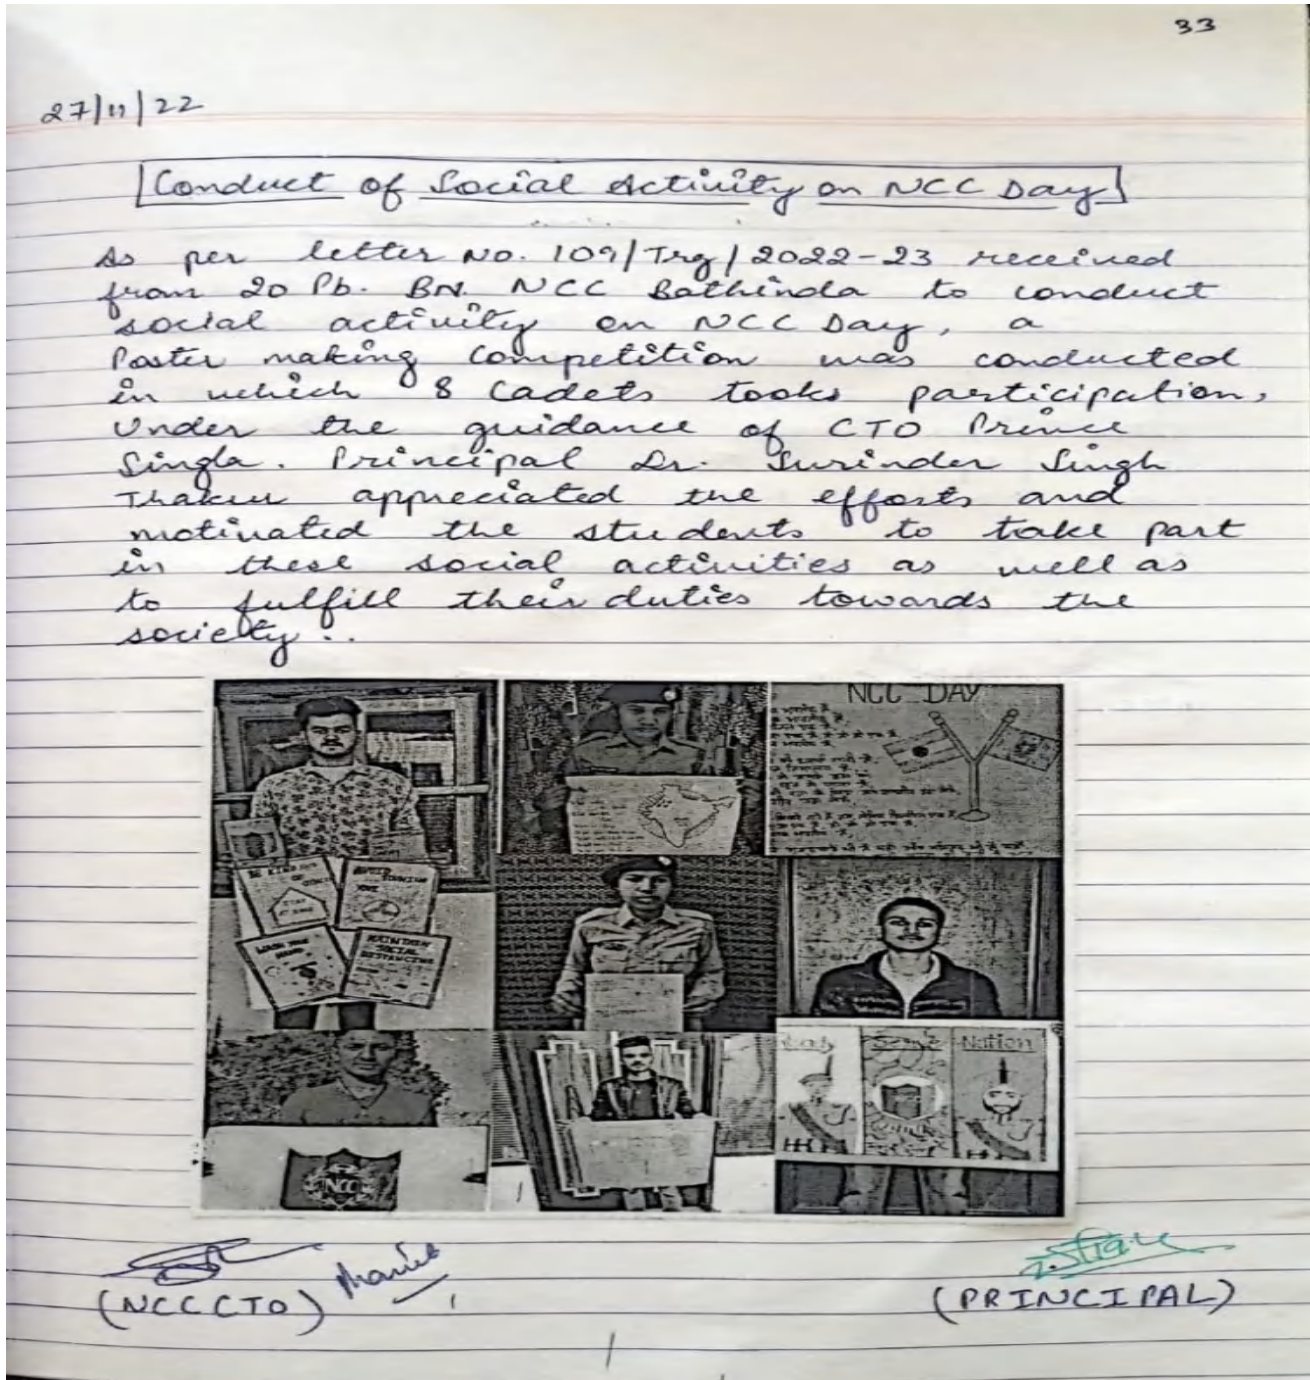 33
27/11/22
Conduct of Social Activity on NCC Day
As per letter No. 109/Trg/2022-23 received
from 20 Pb. BN. NCC Bathinda to conduct
social activity on NCC Day, a
Poster making Competition was conducted
in which 8 Cadets tooks participation,
Under the guidance of CTO Prince
Singla. Principal Dr. Surinder Singh
Thakur appreciated the efforts and
motivated the students to take part
in these social activities as well as
to fulfill their duties towards the
society..
NCC DAY
BE KIND
STAY
AT HOME
AVOID
WASH YOUR
HANDS
MAINTAIN
SOCIAL
DISTANCING
Serve Nation
NCC
(NCC CTO)
(PRINCIPAL)